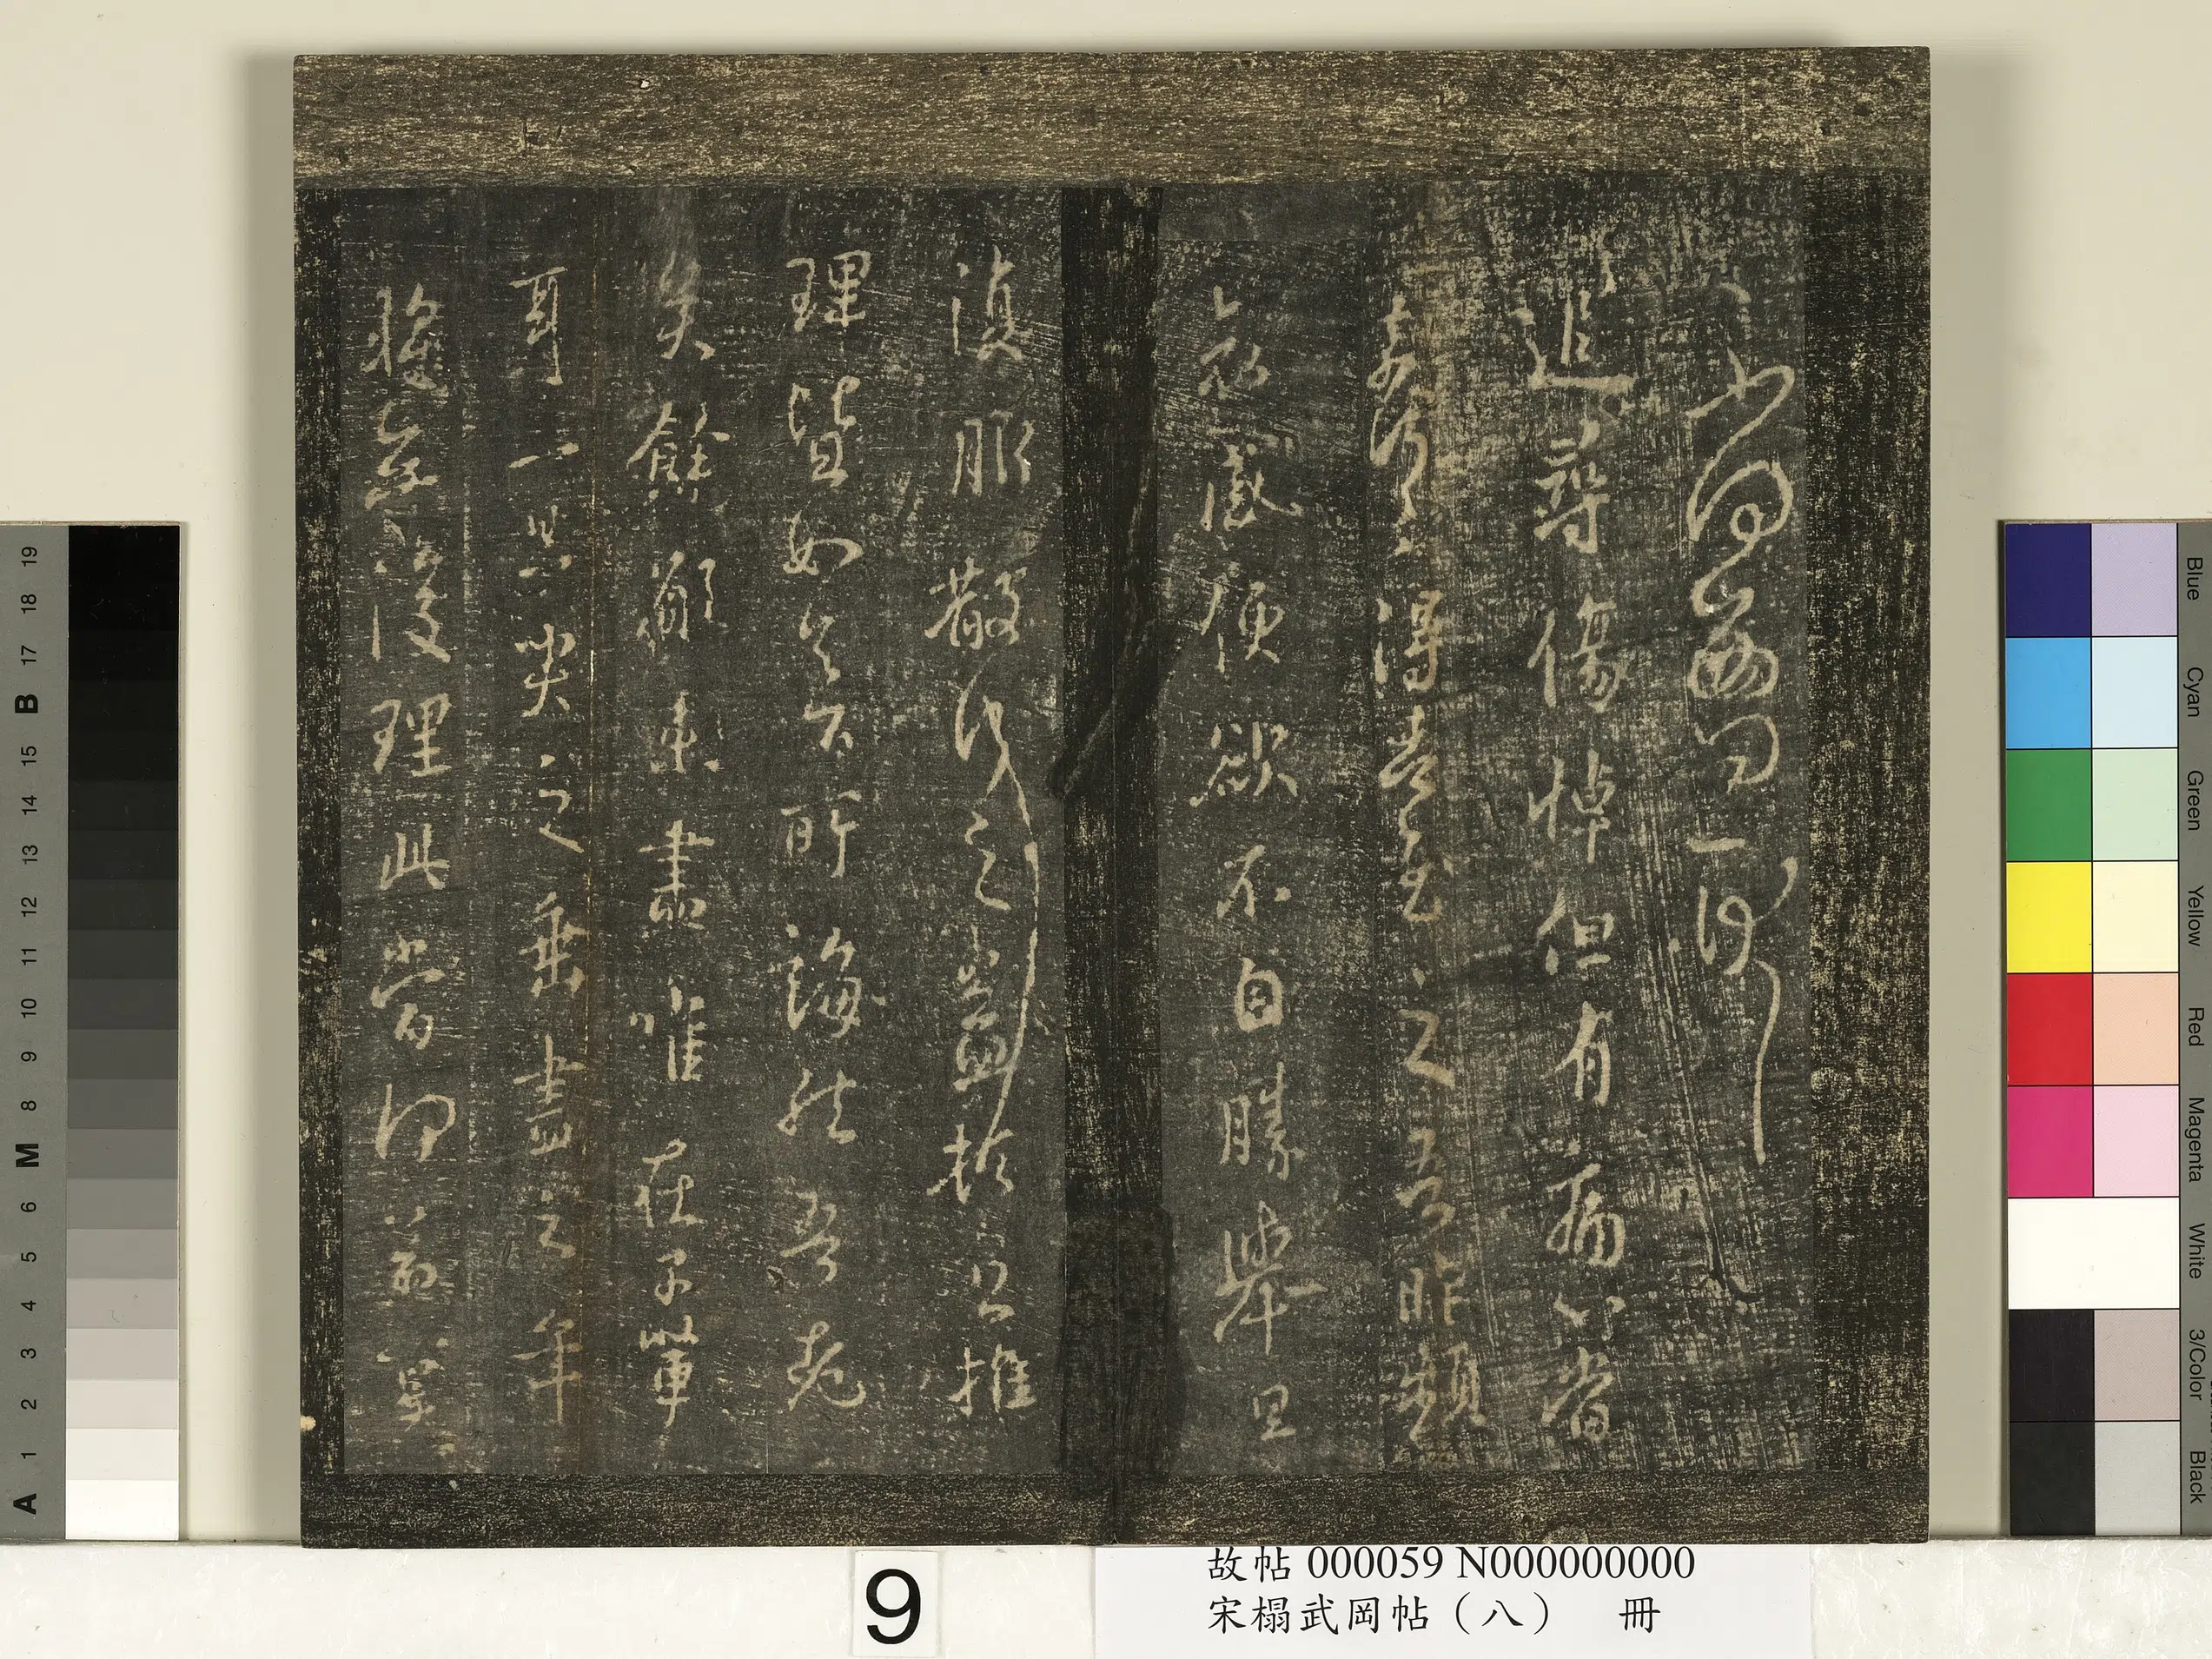 追尋傷悼但有痛心當
奈何奈何得告慰之吾昨頻
哀感便欲不自勝舉旦
復服散行之益推
理皆如足下所誨然吾老
矣餘願未盡唯在子輩
耳一旦哭之垂盡之年
轉無復理此當何益冀
故帖 000059 N000000000
宋榻武岡帖（八） 冊
9
Blue
Cyan
Green
Yellow
Red
Magenta
White
3/Color
Black
19
18
17
B
15
14
13
12
11
10
9
8
M
6
5
4
3
2
1
A